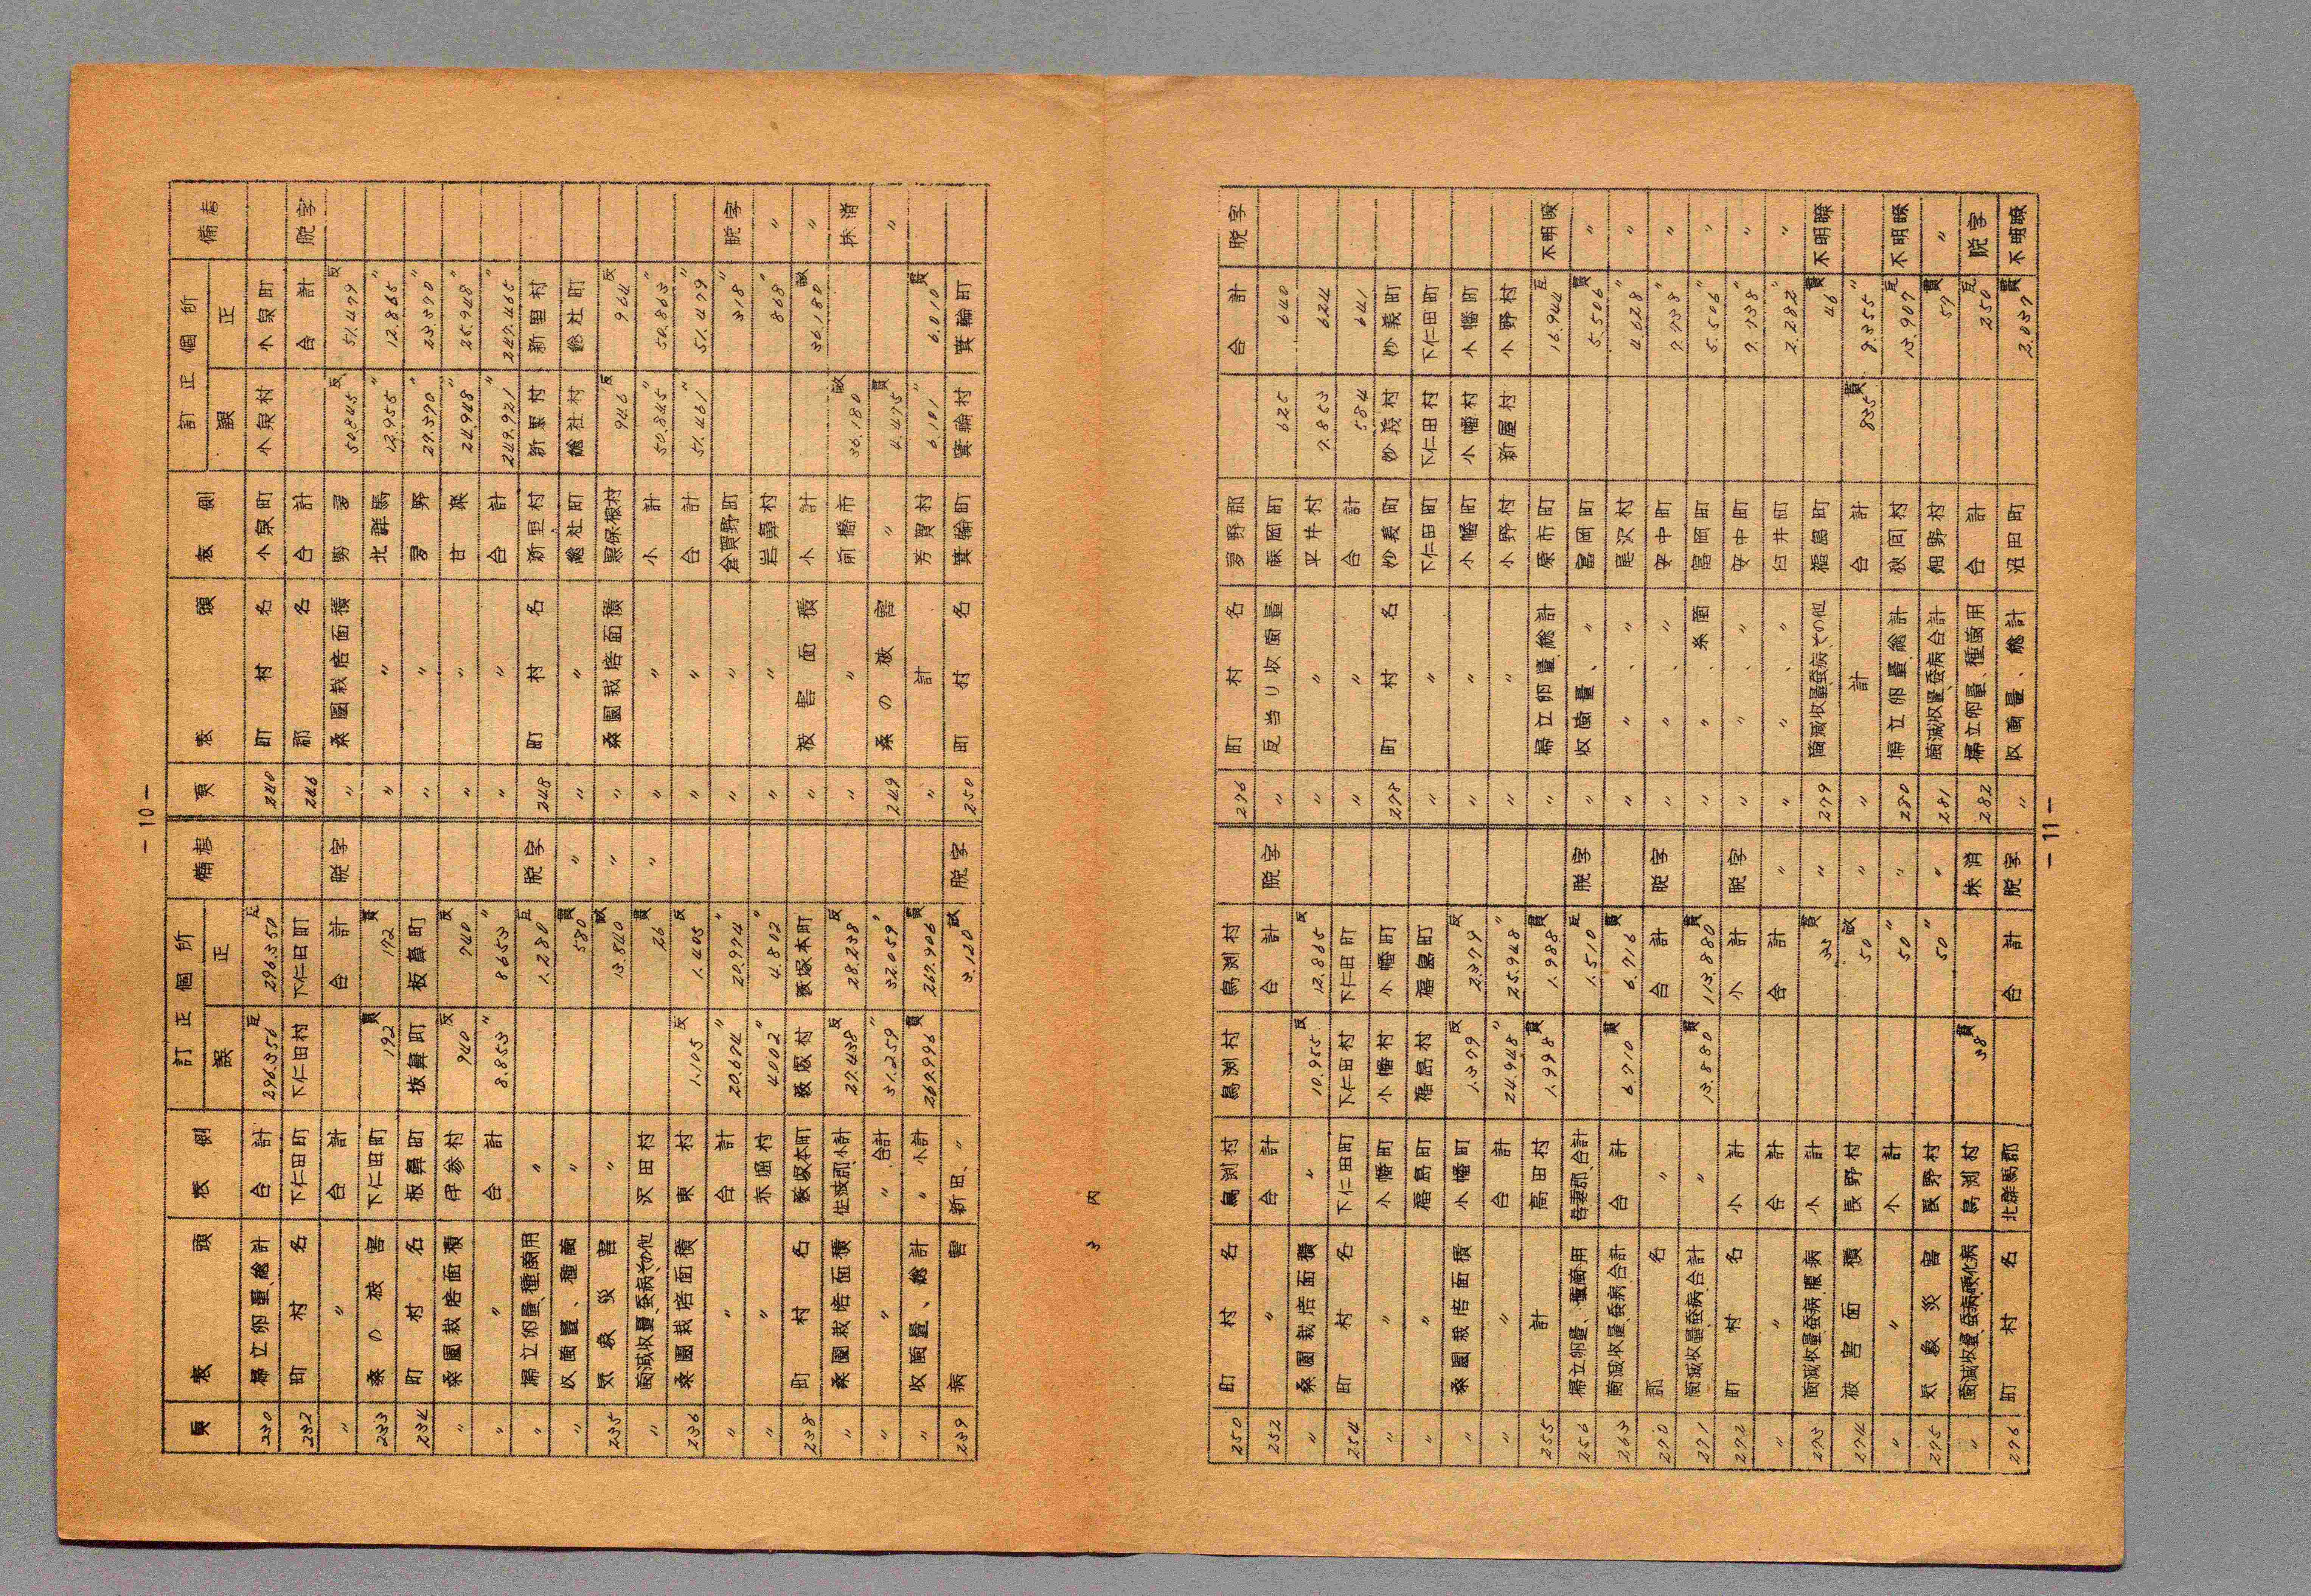 - 10 -
頁 表頭 表側 訂正個所 誤 正 備考
230 掃立卵量総計 合計 296.351瓦 296.357瓦
232 町村名 下仁田町 下仁田村 下仁田町
〃 〃 合計 合計 脱字
233 桑の被害 下仁田町 192貫 172貫
234 町村名 板鼻町 抜鼻町 板鼻町
〃 桑園栽培面積 伊参村 940反 740反
〃 〃 合計 8.853〃 8653〃
〃 掃立卵量、種繭用 〃 1.280瓦 脱字
〃 收繭量、種繭 〃 580貫 〃
235 気象災害 〃 13.840畝 〃
〃 繭減収量蚕病その他 沢田村 26貫 〃
236 桑園栽培面積 東村 1.105反 1.405反
〃 〃 合計 20.674〃 20.974〃
〃 〃 赤堀村 4.002〃 4.802〃
238 町村名 薮塚本町 薮塚村 薮塚本町
〃 桑園栽培面積 佐波郡小計 27.438反 28.238反
〃 〃 〃 合計 31.259〃 32.059〃
〃 收繭量、総計 〃 小計 267.996貫 267.906貫
239 病害 新田 〃 3.120畝 脱字
頁 表頭 表側 訂正個所 誤 正 備考
240 町村名 小泉町 小泉村 小泉町
246 郡名 合計 合計 脱字
〃 桑園栽培面積 勢多 50.845反 51.479反
〃 〃 北群馬 12.955〃 12.865〃
〃 〃 多野 27.370〃 23.370〃
〃 〃 甘楽 24.948〃 25.948〃
〃 〃 合計 249.921〃 247.465〃
248 町村名 新里村 新累村 新里村
〃 〃 総社町 総社村 総社町
〃 桑園栽培面積 黒保根村 946反 964反
〃 〃 小計 50.845〃 50.863〃
〃 〃 合計 51.461〃 51.479〃
〃 〃 倉賀野町 318〃 脱字
〃 〃 岩鼻村 868〃 〃
〃 被害面積 小計 36.180畝 〃
〃 〃 前橋市 36.180畝 抹消
249 桑の被害 〃 4.475貫 〃
〃 計 芳賀村 6.101〃 6.010貫
250 町村名 箕輪町 箕輪村 箕輪町
3 内
250 町村名 烏渕村 烏渕村 烏渕村
252 〃 合計 合計 脱字
〃 桑園栽培面積 〃 10.955反 12.865反
254 町村名 下仁田町 下仁田村 下仁田町
〃 〃 小幡町 小幡村 小幡町
〃 〃 福島町 福島村 福島町
〃 桑園栽培面積 小幡町 1.379反 2.379反
〃 〃 合計 24.948〃 25.948〃
255 計 高田村 1.998貫 1.988貫
256 掃立卵量、種繭用 吾妻郡合計 1.510瓦 脱字
263 繭減収量蚕病合計 合計 6.710貫 6.716貫
270 郡名 〃 合計 脱字
271 繭減収量蚕病合計 〃 13.880貫 113.880貫
272 町村名 小計 小計 脱字
〃 〃 合計 合計 〃
273 繭減収量蚕病膿病 小計 33貫 〃
274 被害面積 長野村 50畝 〃
〃 〃 小計 50〃 〃
275 気象災害 長野村 50〃 〃
〃 繭減収量蚕病硬化病 烏渕村 38貫 抹消
276 町村名 北群馬郡 合計 脱字
276 町村名 多野郡 合計 脱字
〃 反当り收繭量 藤岡町 625 640
〃 〃 平井村 7.853 624
〃 〃 合計 584 641
278 町村名 妙義町 妙義村 妙義町
〃 〃 下仁田町 下仁田村 下仁田町
〃 〃 小幡町 小幡村 小幡町
〃 〃 小野村 新屋村 小野村
〃 掃立卵量総計 原市町 16.944瓦 不明瞭
〃 收繭量、〃 富岡町 5.506貫 〃
〃 〃、〃 尾沢村 4.628〃 〃
〃 〃、〃 安中町 7.738〃 〃
〃 〃、糸繭 富岡町 5.506〃 〃
〃 〃、〃 安中町 7.738〃 〃
〃 〃、〃 臼井町 2.282〃 〃
279 繭減収量蚕病その他 福島町 46貫 不明瞭
〃 計 合計 835貫 9.355〃
280 掃立卵量、総計 秋間村 13.907瓦 不明瞭
281 繭減収量蚕病合計 細野村 57貫 〃
282 掃立卵量、種繭用 合計 250瓦 脱字
〃 収繭量、総計 沼田町 2.039貫 不明瞭
- 11 -